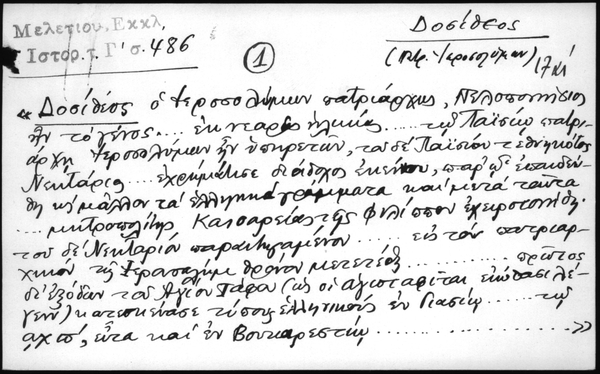 Μελετίου, Εκκλ.
Ιστορ. τ. Γ' σ. 486
①
Δοσίθεος
(Πτρ. Ιεροσολύμων)
17 αι
« Δοσίθεος ὁ Ἱεροσολύμων πατριάρχης, Πελοποννήσιος
ἦν τὸ γένος .... ἐκ νεαρᾶς ἡλικίας ..... τῷ Παϊσίῳ πατρι-
άρχῃ Ἱεροσολύμων ἦν ὑπηρετῶν, τοῦ δὲ Παϊσίου τεθνηκότος
Νεκτάριος .... ἐχρημάτισε διάδοχος ἐκείνου, παρ' ᾧ ἐπαιδεύ-
θη καὶ μᾶλλον τὰ ἑλληνικὰ γράμματα καὶ μετὰ ταῦτα
...... μητροπολίτης Καισαρείας τῆς Φιλίππου ἐχειροτονήθη.
τοῦ δὲ Νεκταρίου παραιτησαμένου ...... εἰς τὸν πατριαρ-
χικὸν τῆς Ἱερουσαλὴμ θρόνον μετετέθη ........ πρῶτος
δι' ἐξόδων τοῦ Ἁγίου Τάφου (ὡς οἱ ἁγιοταφῖται εἰώθασι λέ-
γειν) κατεσκεύασε τύπους ἑλληνικοὺς ἐν Γιασίῳ ...... τῷ
αχπ', εἶτα καὶ ἐν Βουκαρεστίῳ .......................... »